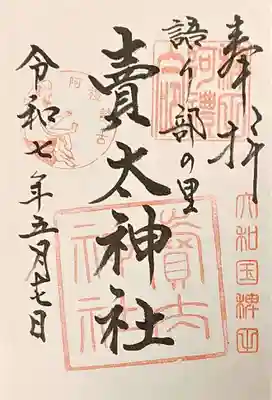 奉拝
大和国稗田
語り部の里
賣太神社
賣太神社
令和七年五月十七日